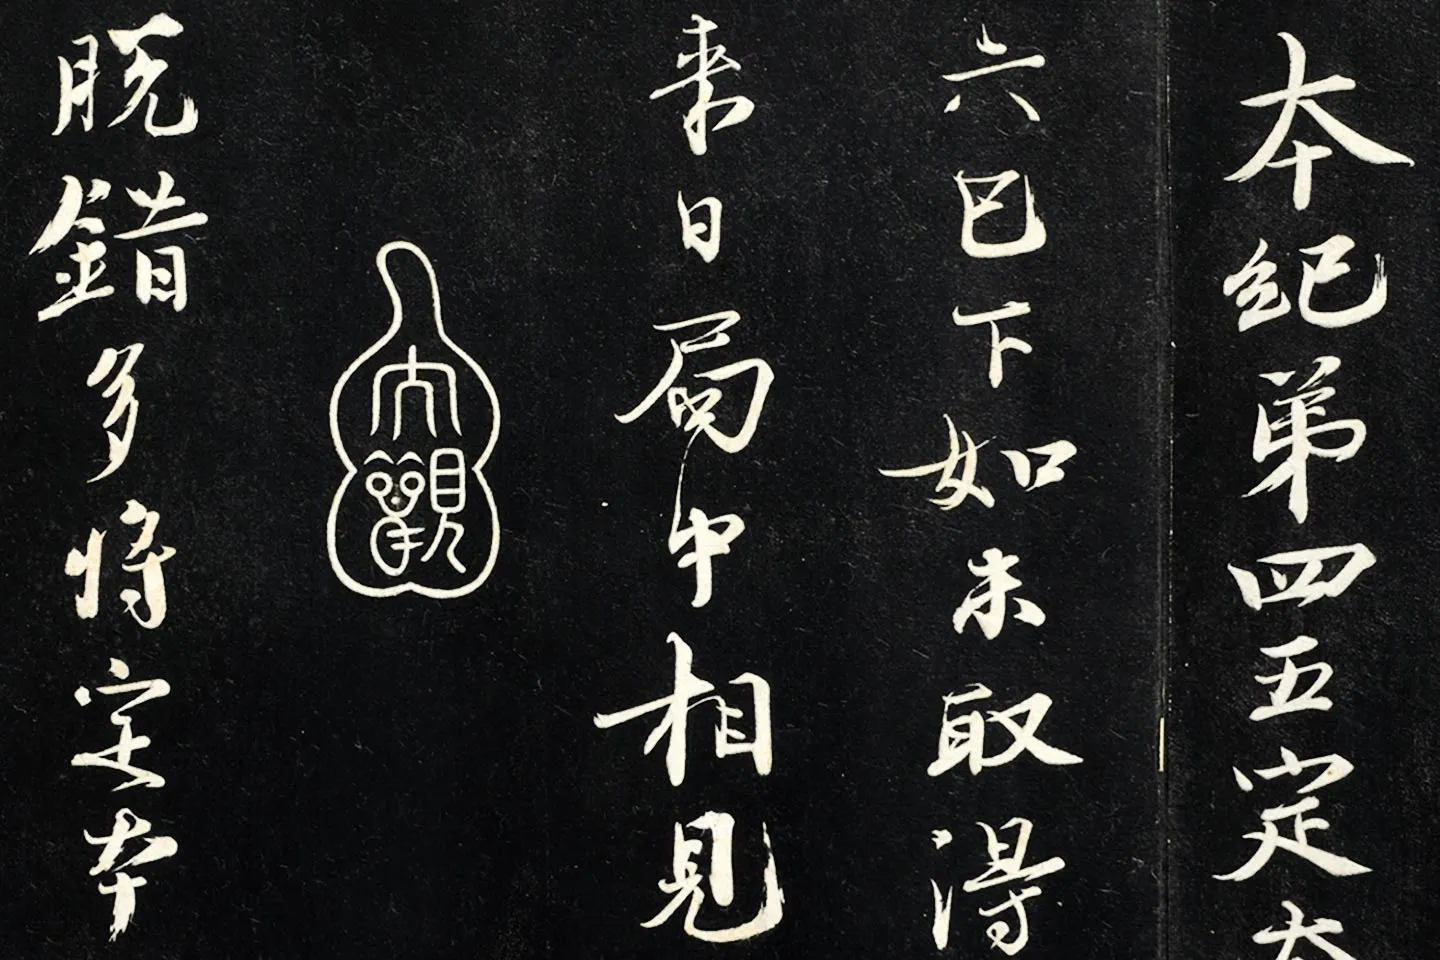 本紀第四五定本
六已下如未取得
来日局中相見
大觀
脱錯多將定本